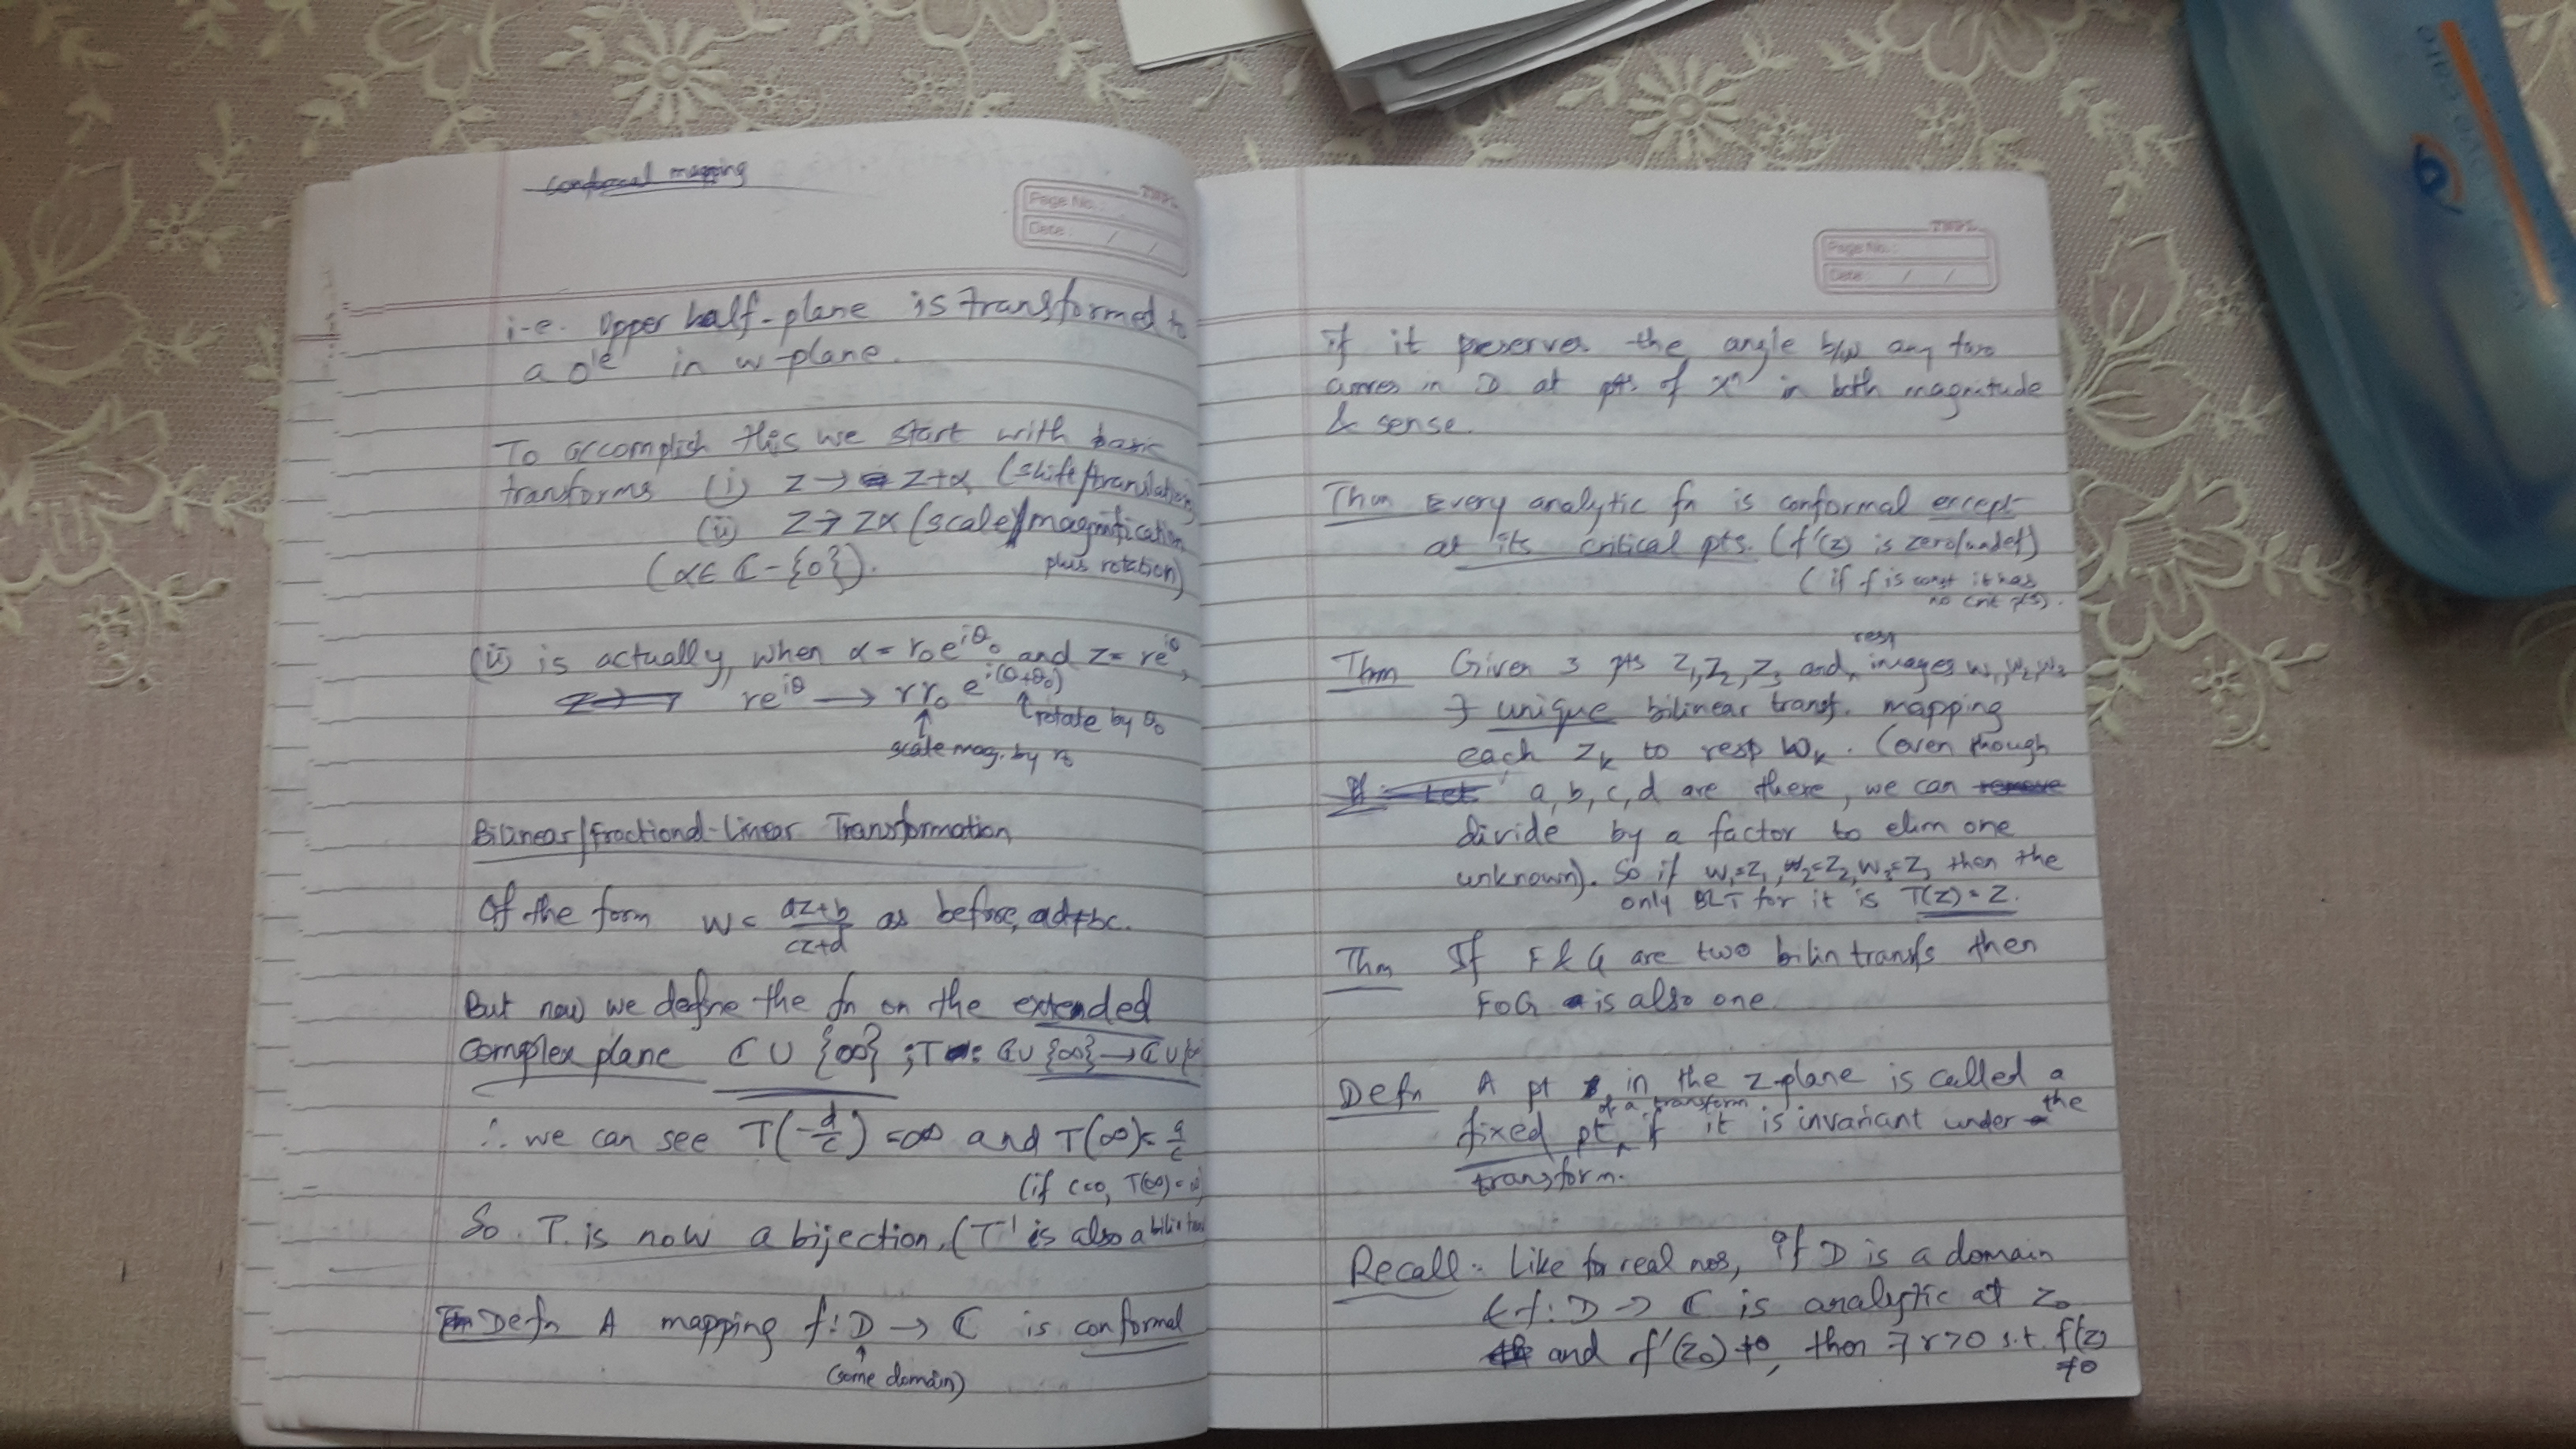 conformal mapping
TNPL
Page No.:
Date: / /
i-e. Upper half-plane is transformed to
a ole in w-plane.
To accomplish this we start with basic
transforms (i) z → z+α (shift/translation)
(ii) z → zα (scale/magnification
(α∈ ℂ-{0}). plus rotation)
(ii) is actually, when α = r₀e^{iθ₀} and z = re^{iθ},
re^{iθ} → rr₀ e^{i(θ+θ₀)}
↑ rotate by θ₀
↑ scale mag. by r₀
Bilinear/fractional-linear Transformation
Of the form w = (az+b)/(cz+d) as before, ad≠bc.
But now we define the fn on the extended
complex plane ℂ ∪ {∞} ; T: ℂ∪{∞} → ℂ∪{∞
∴ we can see T(-d/c) = ∞ and T(∞) = a/c
(if c=0, T(∞)=∞)
So T is now a bijection. (T⁻¹ is also a bilin
Defn A mapping f: D → ℂ is conformal
↑
(some domain)
TNPL
Page No.:
Date: / /
if it preserves the angle b/w any two
curves in D at pts. of xⁿ in both magnitude
& sense.
Thm Every analytic fn is conformal except
at its critical pts. (f'(z) is zero/undef)
(if f is const it has
no crit pts).
Thm Given 3 pts z₁,z₂,z₃ and resp images w₁,w₂,w₃
∃ unique bilinear transf. mapping
each z_k to resp w_k. (even though
Let a,b,c,d are there, we can remove
divide by a factor to elim one
unknown). So if w₁=z₁, w₂=z₂, w₃=z₃ then the
only BLT for it is T(z)=z.
Thm If F & G are two bilin transfs then
FoG is also one.
Defn A pt in the z-plane is called a
fixed pt of a transform if it is invariant under the
transform.
Recall: Like for real nos, if D is a domain
& f: D → ℂ is analytic at z₀
and f'(z₀)≠0, then ∃ r>0 s.t. f(z)
≠0